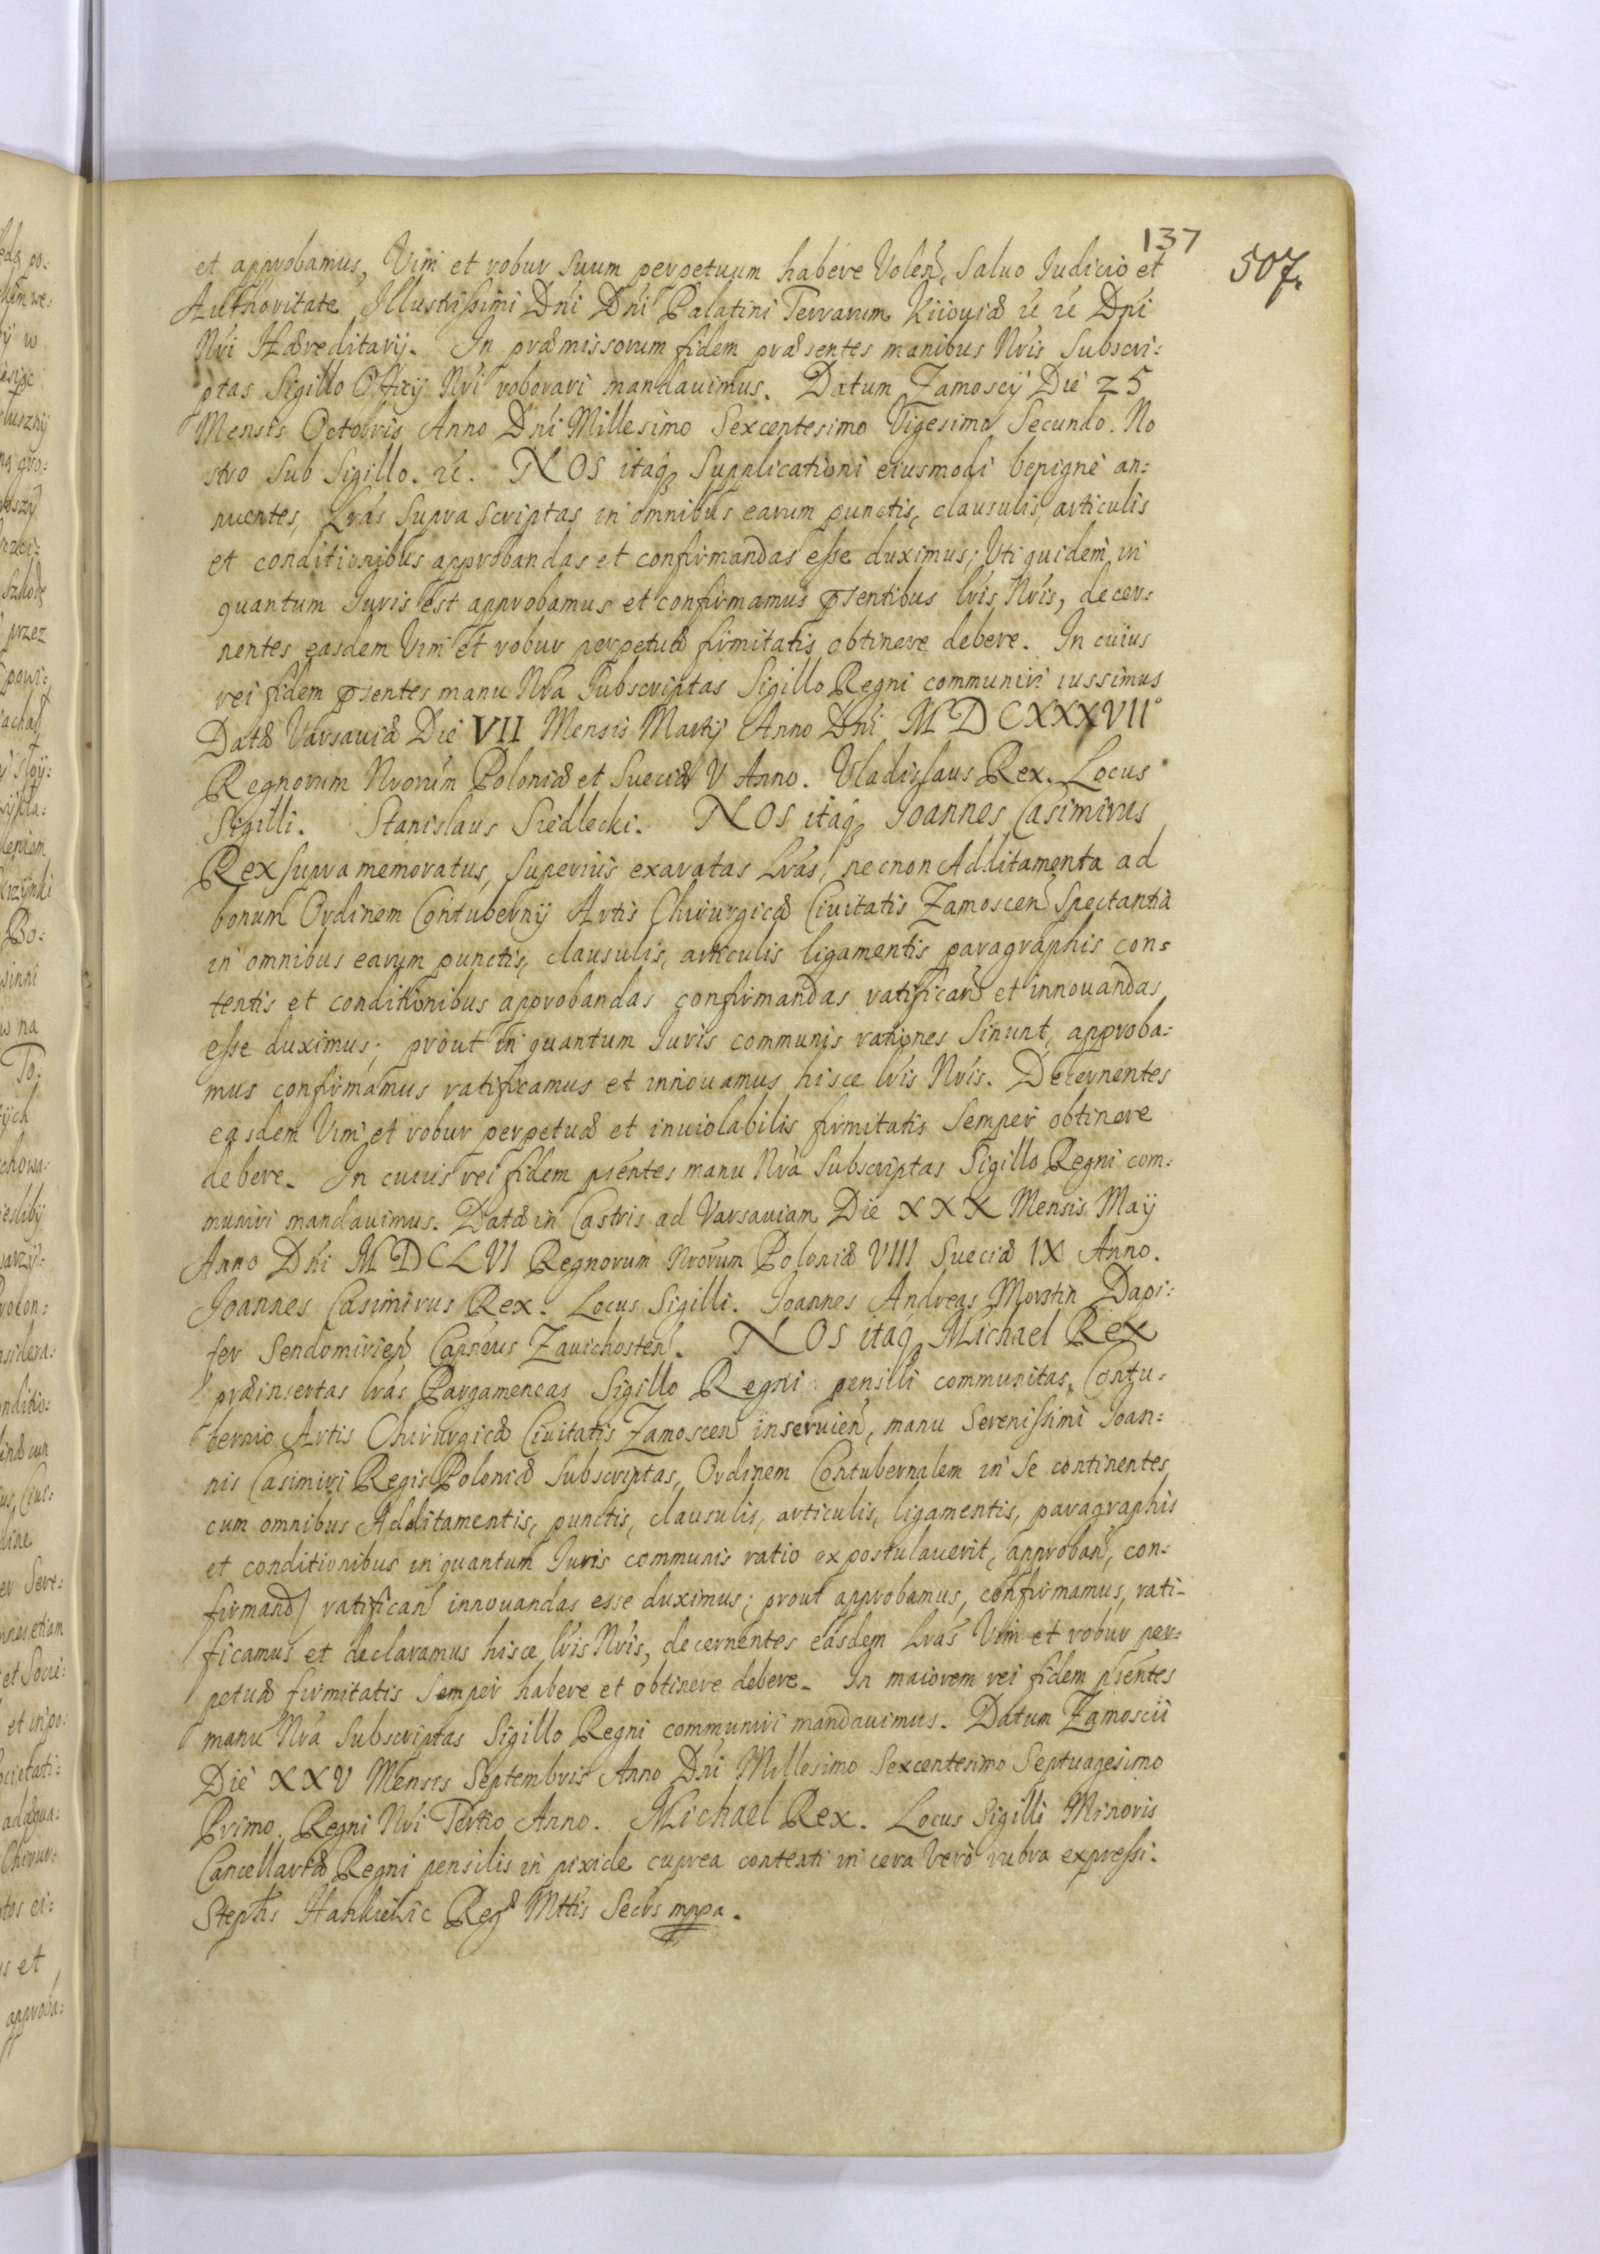 137
507.
et approbamus, Vim et robur Suum perpetuum habere Volen̄, Saluo Iudicio et
Authoritate Illustrissimi Dńi Dńi Palatini Terrarum Kiiouiæ &c &c Dńi
Nŕi Hæreditarij. In præmissorum fidem præsentes manibus Nŕis Subscri:
ptas Sigillo Officij Nŕi roborari mandauimus. Datum Zamoscij Die 25
Mensis Octobris Anno Dńi Millesimo Sexcentesimo Vigesimo Secundo. No
stro Sub Sigillo. &c. NOS itaq; Supplicationi eiusmodi benigne an:
nuentes, Lrás Supra Scriptas in omnibus earum punctis, clausulis, articulis
et conditionibus approbandas et confirmandas esse duximus; Uti quidem in
quantum Iuris est approbamus et confirmamus pŕsentibus lŕis Nŕis, decer:
nentes easdem Vim et robur perpetuæ firmitatis obtinere debere. In cuius
rei fidem pŕsentes manu Nŕa Subscriptas Sigillo Regni communiri iussimus
Datæ Varsauiæ Die VII Mensis Martij Anno Dńi MDCXXXVII°
Regnorum Nrorúm Poloniæ et Sueciæ V Anno. Vladislaus Rex. Locus
Sigilli. Stanislaus Siedlecki. NOS itaq; Joannes Casimirus
Rex supra memoratus, Superius exaratas Lrás, necnon Additamenta ad
bonum Ordinem Contubernij Artis Chirurgicæ Ciuitatis Zamoscen̄ Spectantia
in omnibus earum punctis, clausulis, articulis ligamentis paragraphis con:
tentis et conditionibus approbandas confirmandas ratifican̄ et innouandas
esse duximus; prout in quantum Iuris communis rationes Sinunt, approba:
mus confirmamus ratificamus et innouamus hisce lŕis Nŕis. Decernentes
easdem Vim et robur perpetuæ et inuiolabilis firmitatis Semper obtinere
debere. In cuius rei fidem pŕentes manu Nŕa Subscriptas Sigillo Regni com:
muniri mandauimus. Datæ in Castris ad Varsauiam Die XXX Mensis Maij
Anno Dńi MDCLVI Regnorum Nrorúm Poloniæ VIII Sueciæ IX Anno.
Joannes Casimirus Rex. Locus Sigilli. Joannes Andreas Morstin Dapi:
fer Sendomirien̄ Capńeus Zauichosten̄. NOS itaq; Michael Rex
præinsertas lrás Pargameneas Sigillo Regni pensili communitas, Contu:
bernio Artis Chirurgicæ Ciuitatis Zamoscen̄ inseruien̄, manu Serenissimi Joan:
nis Casimiri Regis Poloniæ Subscriptas, Ordinem Contubernalem in Se continentes
cum omnibus Additamentis, punctis, clausulis, articulis, ligamentis, paragraphis
et conditionibus in quantum Iuris communis ratio expostulauerit, approban̄, con:
firmand, ratifican̄ innouandas esse duximus; prout approbamus, confirmamus, rati-
ficamus et declaramus hisce lŕis Nŕis, decernentes easdem Lrás Vim et robur per:
petuæ firmitatis Semper habere et obtinere debere. In maiorem rei fidem pŕentes
manu Nŕa Subscriptas Sigillo Regni communiri mandauimus. Datum Zamoscii
Die XXV Mensis Septembris Anno Dńi Millesimo Sexcentesimo Septuagesimo
Primo Regni Nŕi Tertio Anno. Michael Rex. Locus Sigilli Minoris
Cancellariæ Regni pensilis in pixide cuprea contenti in cera Vero rubra expressi.
Stephs Hankiewic Regæ Mttis Secrs mppa.